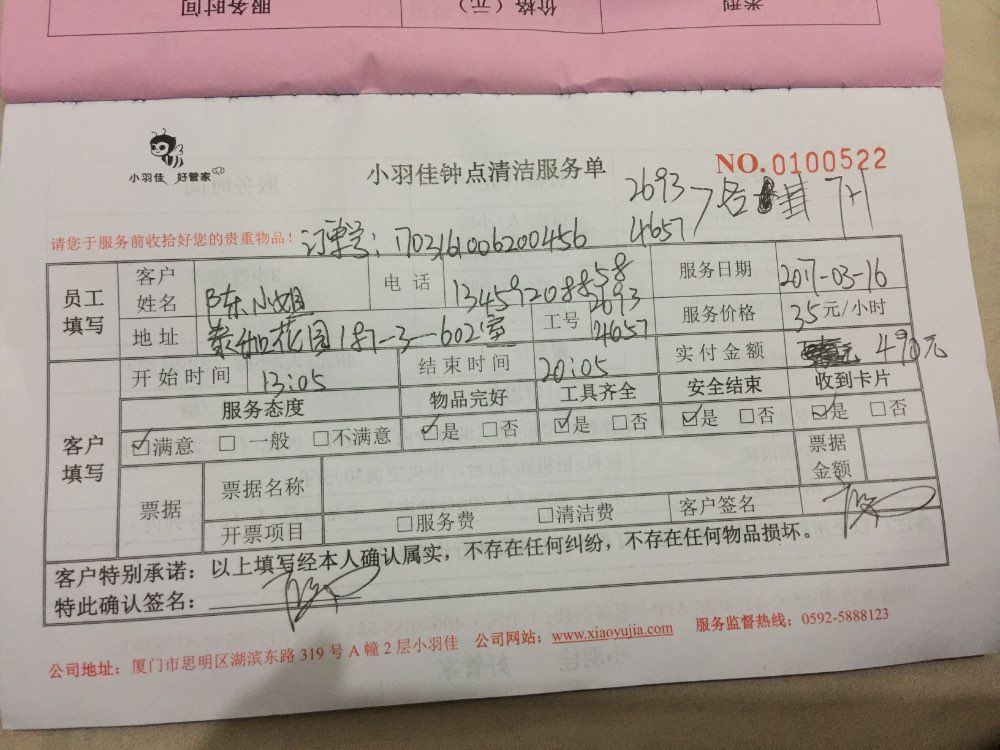 服务时间 价格（元） 类型
小羽佳 好管家
小羽佳钟点清洁服务单
NO.0100522
2693
4657
请您于服务前收拾好您的贵重物品！
订单号：1703161006200456
员工填写 客户姓名 陈小姐 电话 13459208858 服务日期 2017-03-16
地址 泰如花园187-3-602室 工号 2693 4657 服务价格 35元/小时
客户填写 开始时间 13:05 结束时间 20:05 实付金额 490元
服务态度 物品完好 工具齐全 安全结束 收到卡片
☑满意 □一般 □不满意 ☑是 □否 ☑是 □否 ☑是 □否 ☑是 □否
票据 票据名称 票据金额
开票项目 □服务费 □清洁费 客户签名
客户特别承诺：以上填写经本人确认属实，不存在任何纠纷，不存在任何物品损坏。
特此确认签名：
公司地址：厦门市思明区湖滨东路319号A幢2层小羽佳 公司网站：www.xiaoyujia.com 服务监督热线：0592-5888123